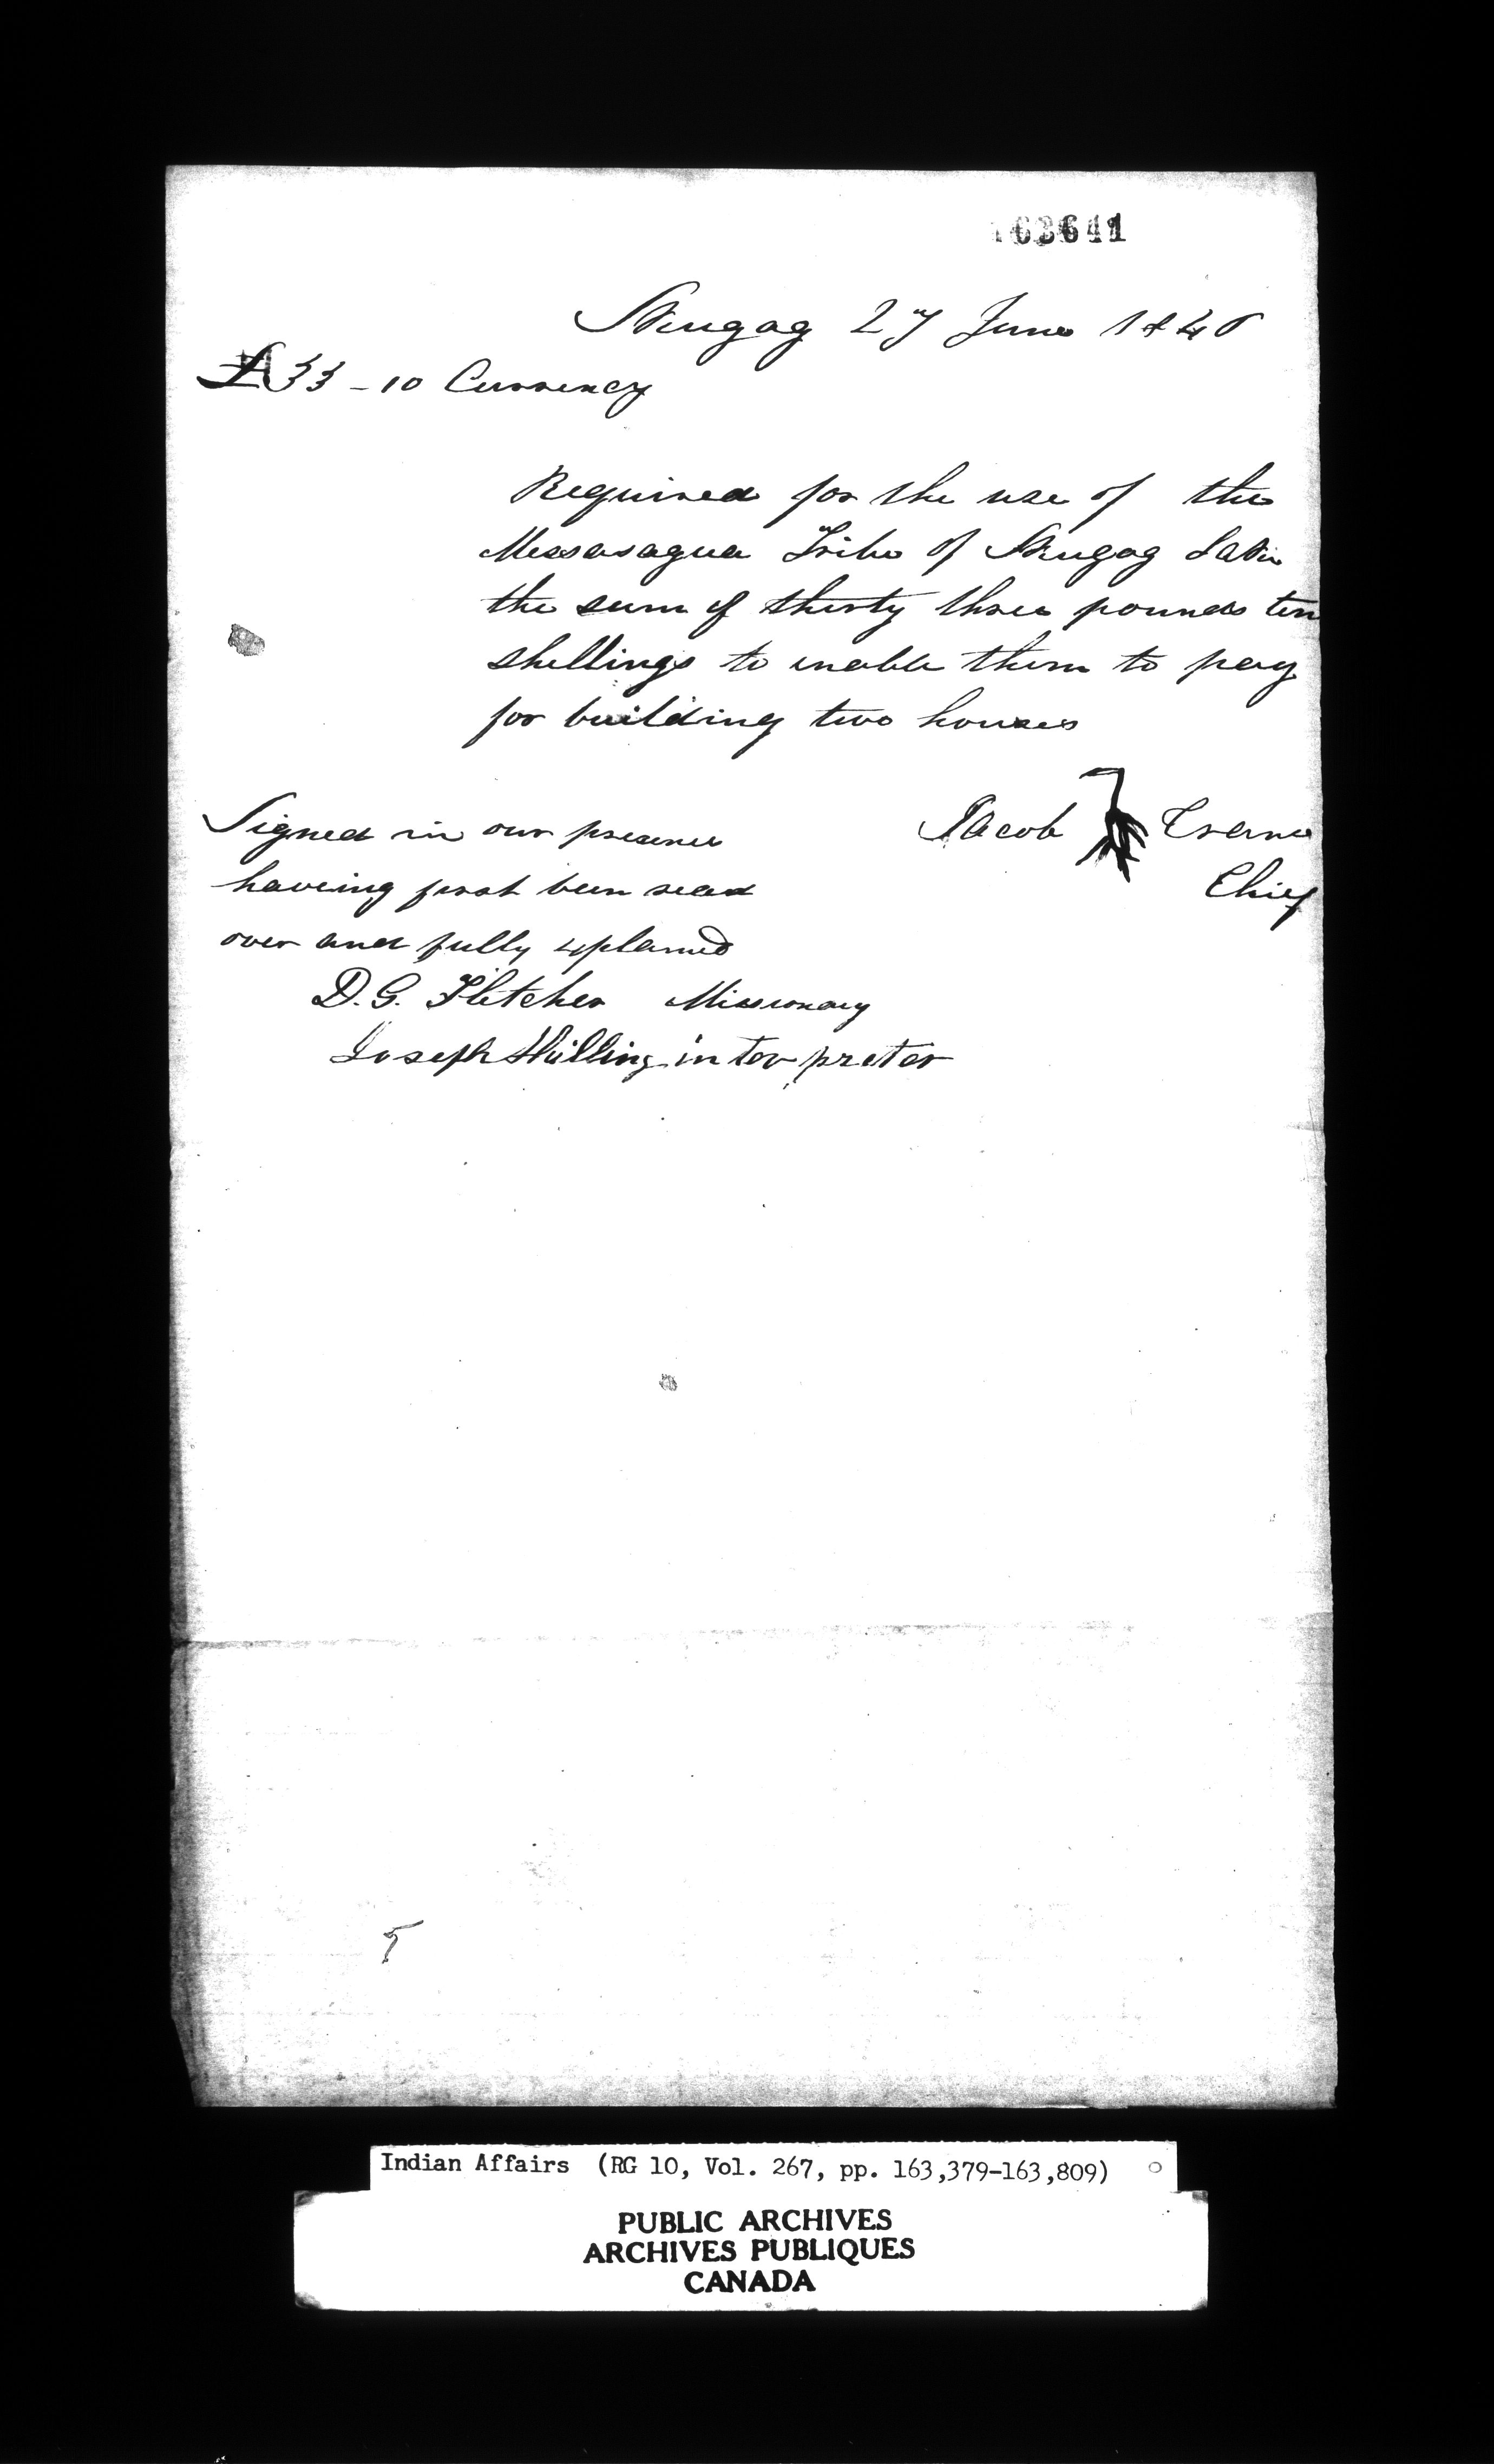 163641
Skugog 27 June 184
£33 - 10 Currency
Required for the use of the
Messasagua Tribe of Skugog Lake
the sum of thirty three pounds ten
shillings to enable them to pay
for building two houses
Signed in our presence
haveing first been read
over and fully explained
Jacob Crane
Chief
D. G. Fletcher Missionary
Joseph Skilling interpreter
5
Indian Affairs (RG 10, Vol. 267, pp. 163,379-163,809)
PUBLIC ARCHIVES
ARCHIVES PUBLIQUES
CANADA